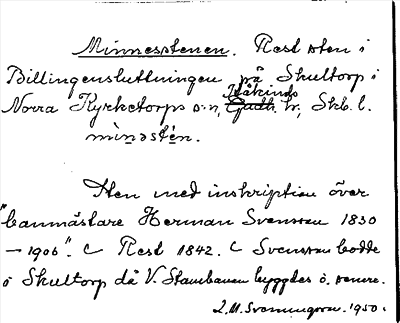 Minnesstenen. Rest sten i
Billingensluttningen på Skultorp i
Norra Kyrketorps s:n, Kåkinds hr, Skb. l.
mìnəstén.
Sten med inskription över
"banmästare Herman Svensson 1830
— 1906". ( Rest 1842. ( Svensson bodde
i Skultorp då V. Stambanan byggdes o. senere.
1950.